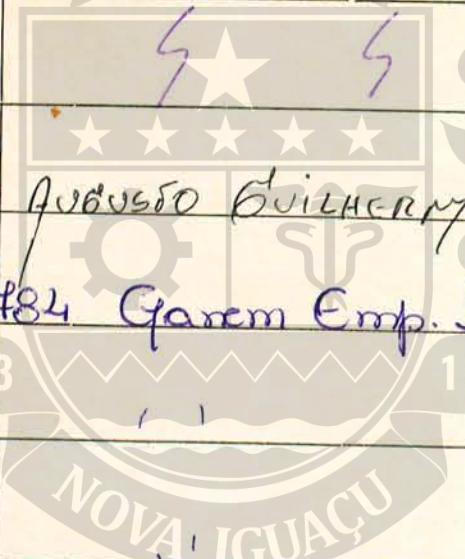 AUGUSTO GUILHERM
784 Garem Emp.
3 1
NOVA IGUAÇU